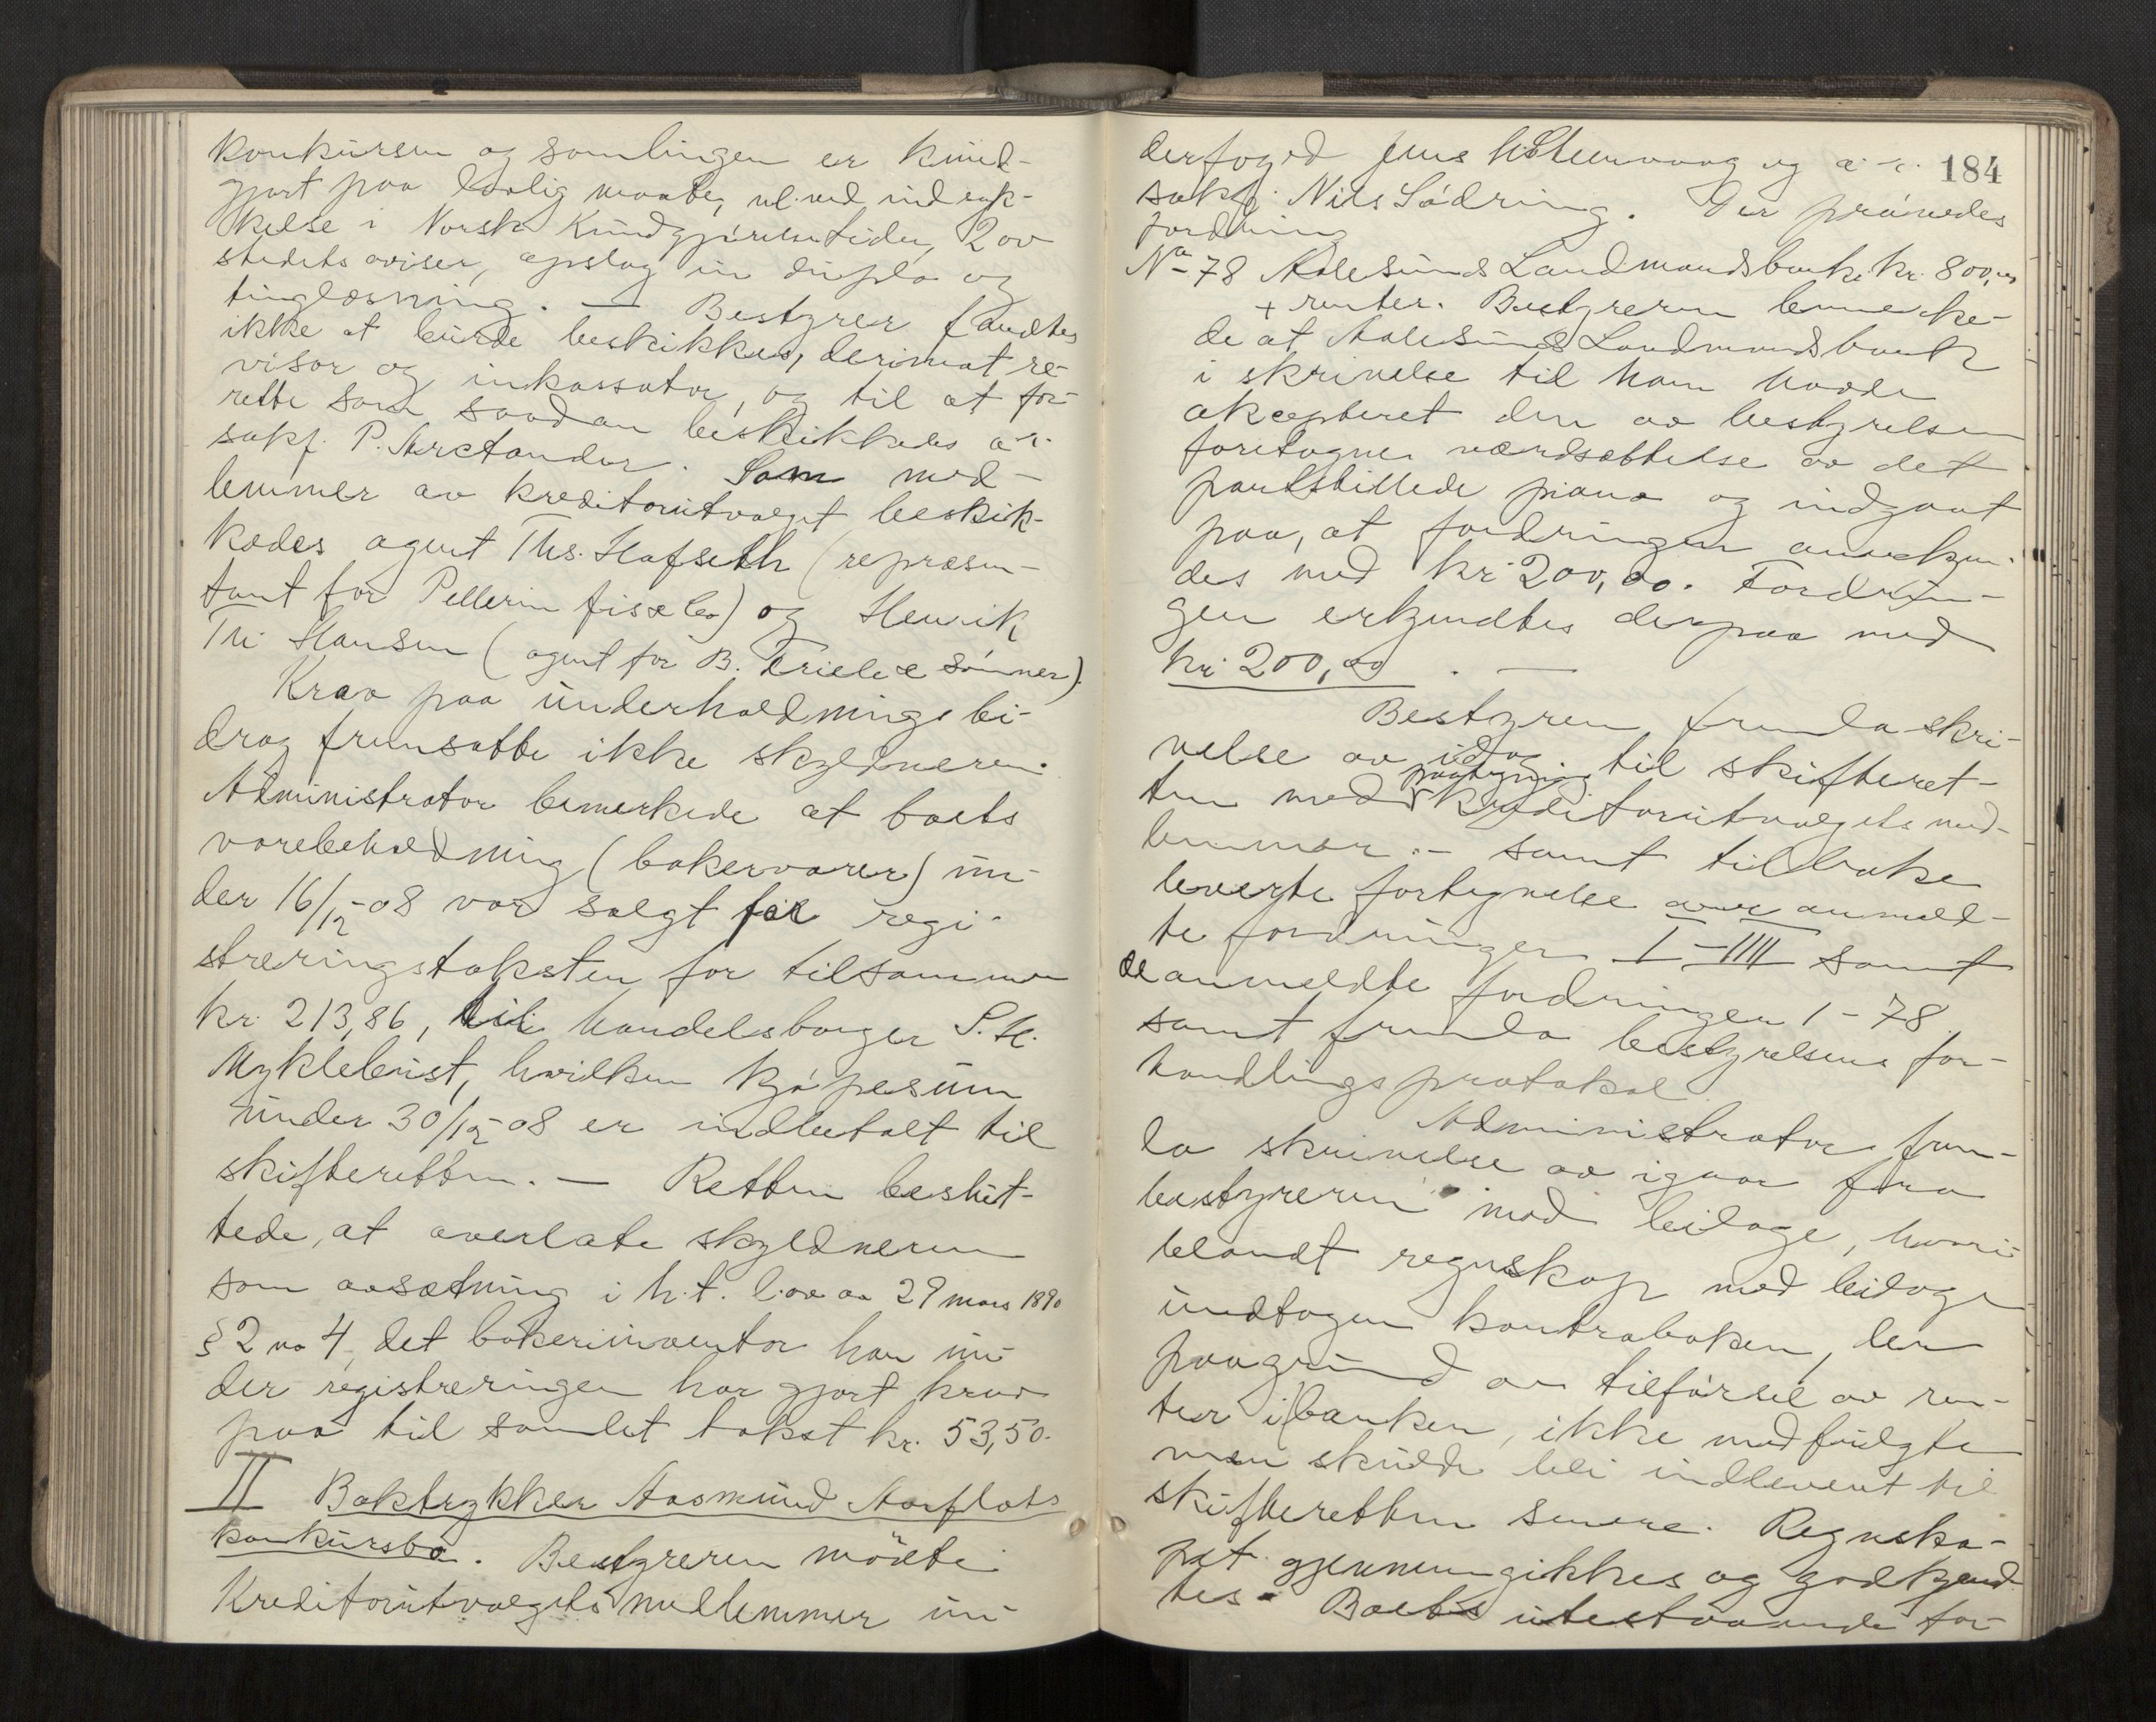 konkursen og samlingen er kund-
gjort paa lovlig maate, nl. ved indryk-
kelse i Norsk Kundgjørelsestidende, 2 av
stedets aviser, opslag in duplo og
tinglæsning. — Bestyrer fandtes
ikke at burde beskikkes, derimot re-
visor og inkassator, og til at for-
rette som saadan beskikkedes o.r.
sakf. P. Arctander. Som med-
lemmer av kreditorutvalget beskik-
kedes agent Ths. Hafseth (repræsen-
tant for Pellerin fils & Co) og Henrik
Th. Hansen (agent for B. Friele & sønner).
Krav paa underholdningsbi-
drag fremsatte ikke skyldneren.
Administrator bemerkede at boets
varebeholdning (bakervarer) un-
der 16/12-08 var solgt for regi-
streringstaksten for tilsammen
kr. 213,86, til handelsborger P. H.
Myklebust, hvilken kjøpesum
under 30/12-08 er indbetalt til
skifteretten. — Retten beslut-
tede, at overlate skyldneren
som avsætning i h.t. lov av 29 mars 1890
§ 2 no 4, det bakeriinventar han un-
der registreringen har gjort krav
paa til samlet takst kr. 53,50.
II Boktrykker Aasmund Aarflots
konkursbo. Bestyreren mødte
Kreditorutvalgets medlemmer un-
184
derfoged Jens Holtenvaag og o.r.
sakf. Nils Sødring. Der prøvedes
fordring
No 78 Aalesunds Landmandsbank kr. 800,00
+ renter. Bestyreren bemerke-
de at Aalesunds Landmandsbank
i skrivelse til ham havde
akcepteret den av bestyrelsen
foretagne værdsættelse av det
pantstillede piano og indgaat
paa, at fordringen anerkjen-
des med kr. 200,00. Fordrin-
gen erkjendtes derpaa med
kr. 200,00. —
Bestyreren fremla skri-
velse av idag til skifteret-
ten med paategning kreditorutvalgets med-
lemmer. — samt tilbake
leverte fortegnelse over anmeld-
te fordringer I-IIII samt
de anmeldte fordringer 1-78
samt fremla bestyrelsens for-
handlingsprotokol.
Administrator frem-
la skrivelse av igaar fra
bestyreren med bilage, hvori-
blandt regnskap med bilage
undtagen kontraboken, der
paagrund av tilførsel av ren-
ter i banken, ikke medfulgte
men skulde bli indleveret til
skifteretten senere. Regnska-
pet gjennemgikkes og godkjend-
tes. Boets utestaaende for-